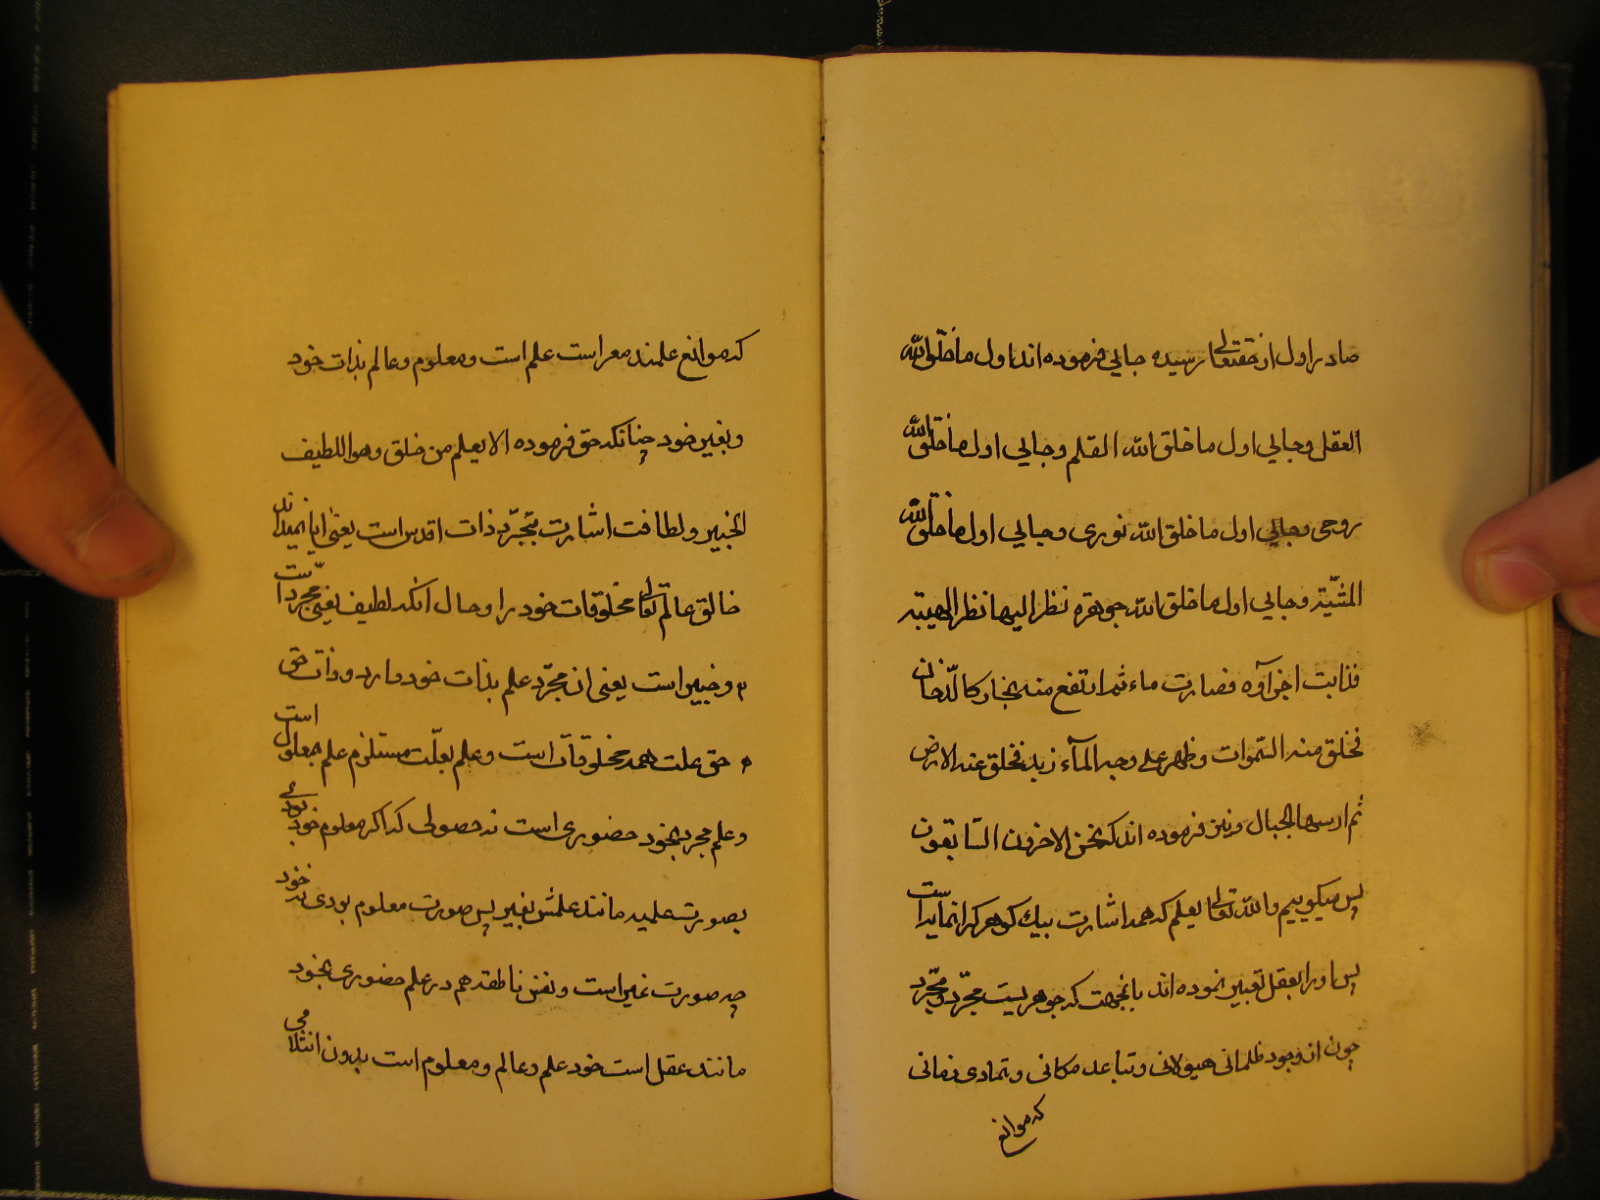 صادر اول از حقتعالی رسیده جایی فرموده اند اول ما خلق الله
العقل و جایی اول ما خلق الله القلم و جایی اول ما خلق الله
روحی و جایی اول ما خلق الله نوری و جایی اول ما خلق الله
المشیّة و جایی اول ما خلق الله جوهرة نظر الیها نظر الهیبة
فذابت اجزآؤه فصارت ماء ثم ارتفع منه بخار کالدّخان
فخلق منه السّموات و ظهر علی وجه المآء زبد فخلق عنه الارض
ثم ارسها بالجبال و نیز فرموده اند که نحن الاخرون السّابقون
پس میکوییم والله تعالی یعلم که همه اشارت بیك کوهر کرانمایه است
پس او را بعقل تعبیر نموده اند بانجهت که جوهریست مجرّد و مجرّد
چون از وجود ظلمانی هیولانی و تباعد مکانی و تمادی زمانی
که موانع
که موانع علمند معراست علم است و معلوم و عالم بذات خود
و بغیر خود چنانکه حق فرموده الا یعلم من خلق و هو اللطیف
الخبیر و لطافت اشارت بتجرّد ذات اقدس است یعنی ایا نمیداند
خالق عالم تعالی مخلوقات خود را و حال آنکه لطیف یعنی مجرّد است
و خبیر است یعنی ان مجرّد علم بذات خود دارد و ذات حق
حق علت همه مخلوقات است و علم بعلّت مستلزم علم بمعلول است
و علم مجرد بخود حضوری است نه حصولی که اکر معلوم خود بودی
بصورت علمیه مانند علمش بغیر پس صورت معلوم بودی نه خود
چه صورت غیر است و نفس ناطقه هم در علم حضوری بخود
مانند عقل است خود علم و عالم و معلوم است بدون انثلامی